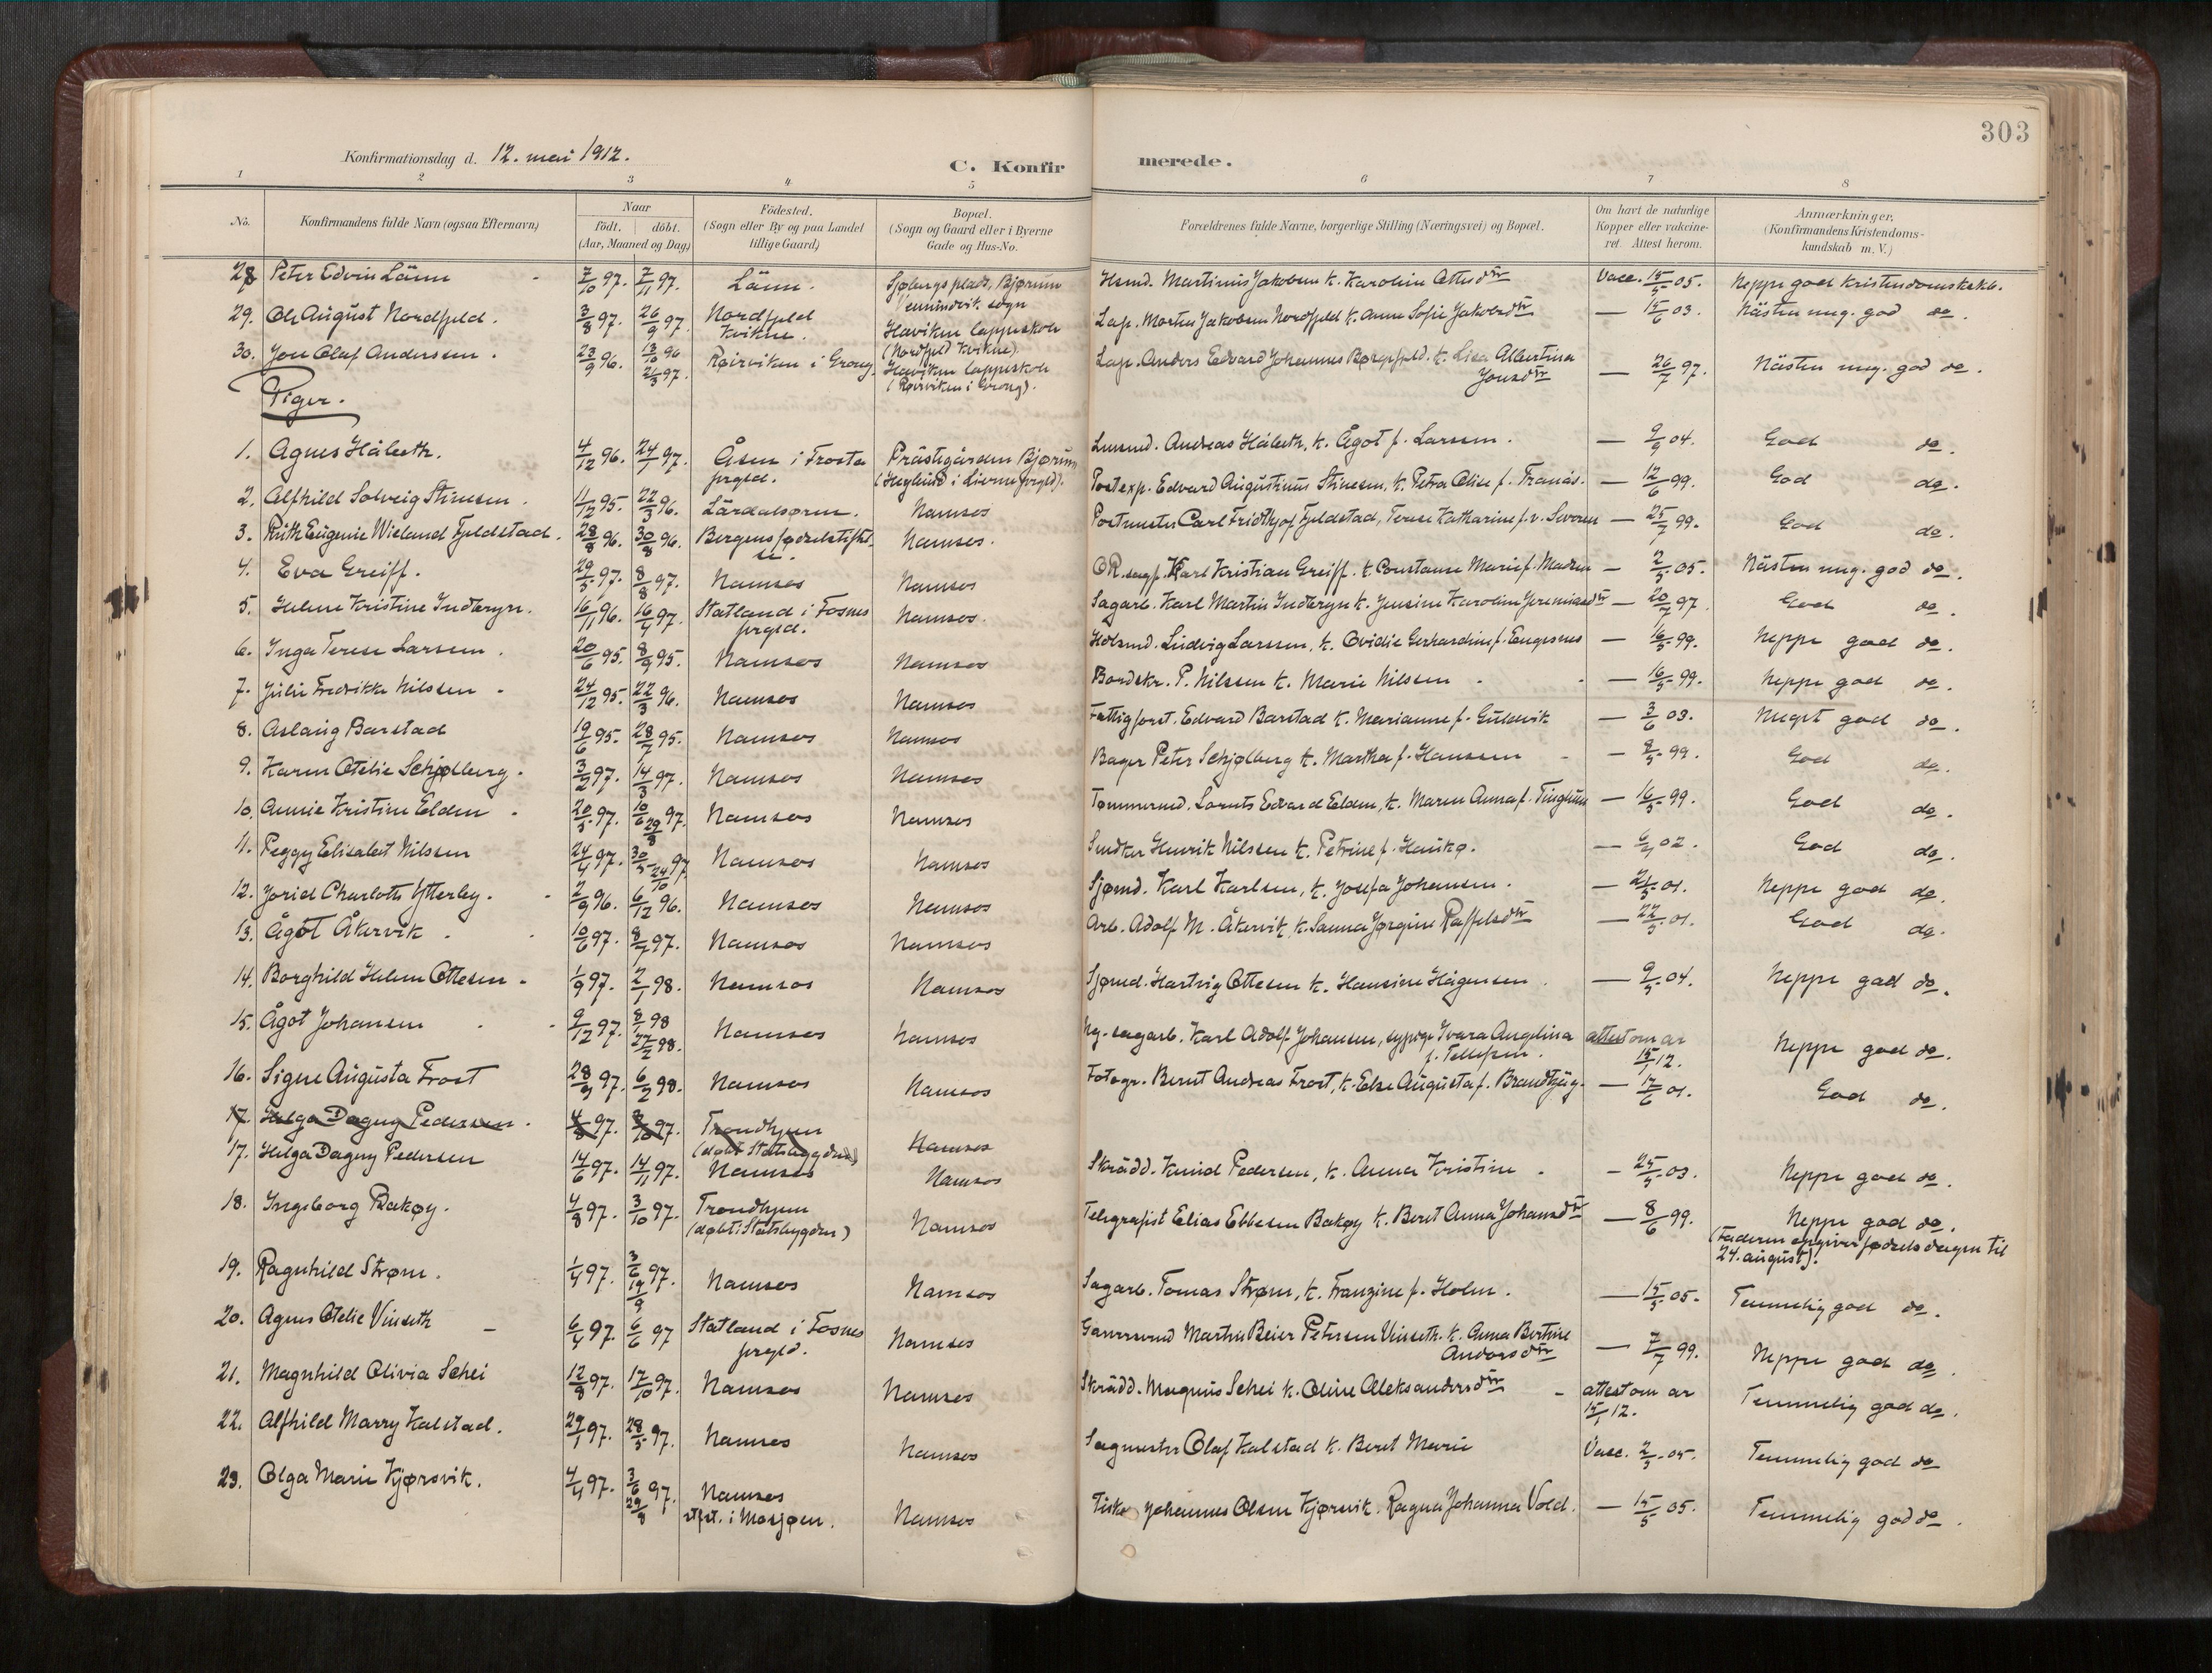 303
Konfirmationsdag d. 12. mai 1912.
C. Konfirmerede.
1 2 3 4 5 6 7 8
No. Konfirmandens fulde Navn (ogsaa Efternavn) Naar født. døbt. (Aar, Maaned og Dag) Fødested. (Sogn eller By og paa Landet tillige Gaard) Bopæl. (Sogn og Gaard eller i Byerne Gade og Hus-No. Forældrenes fulde Navne, borgerlige Stilling (Næringsvei) og Bopæl. Om havt de naturlige Kopper eller vakcineret. Attest herom. Anmærkninger, (Konfirmandens Kristendomskundskab m. V.)
28 Peter Edvin Länn 7/10 97. 7/11 97. Länn. Sjøbergsplads, Bjørum Husmd. Martinus Jakobsen k. Karolin Ottesdtr Vacc. 15/5 05. Neppe god kristendomskskb.
29. Ole August Nordfjeld. 3/8 97. 26/9 97. Nordfjeld Kvikne. Haviken lappeskole (Nordfjeld Kvikne) Lap. Morten Jakobsen Nordfjeld k. Anna Sofie Jakobsdtr — 15/6 03. Nästen meg. god do.
30. Jon Olaf Anderssen. 23/9 96. 13/10 96 21/3 97. Røirviken i Grong. Haviken lappeskole (Røirviken i Grong). Lap. Anders Edvard Johannes Børgefjeld. k. Lisa Albertina Jonsdtr — 26/7 97. Nästen meg. god do.
Piger.
1. Agnes Hálseth. 4/12 96. 24/1 97. Åsen i Frosta prgld. Prästegården Bjørum (Heglund i Lierne prgld). Lensmd. Andreas Hálseth, k. Ågot f. Larssen. — 9/9 04. God do.
2. Alfhild Solveig Stinesen. 11/12 95. 22/3 96. Lärdalsøren. Namsos Postexp. Edvard Augustinus Stinesen, k. Petra Olise f. Tranás. — 12/6 99. God do.
3. Ruth Eugenie Wieland Fjeldstad. 28/8 96. 30/8 96. Bergens fødselsstiftelse. Namsos. Postmester Carl Fridthjof Fjeldstad, Terese Katharine f. v. Severen — 25/7 99. God do.
4. Eva Greiff. 29/5 97. 8/8 97. Namsos Namsos OR.sagf. Karl Kristian Greiff. k. Constanse Marie f. Madsen — 2/5 05. Nästen meg. god do.
5. Helene Kristine Inderøyn. 16/11 96. 16/4 97. Statland i Fosnes prgld. Namsos. Sagarb. Karl Martin Inderøyn k. Jensine Karoline Jeremiasdtr — 20/7 97. God do.
6. Inga Terese Larssen. 20/6 95. 8/9 95. Namsos Namsos Ludvig Larssen, k. Ovidie Gerhardine f. Engesnes — 16/5 99. Neppe god do.
7. Julie Fredrikke Nilssen. 24/12 95. 22/3 96. Namsos Namsos Bordskr. P. Nilssen k. Marie Nilssen — 16/5 99. Neppe god do.
8. Aslaug Barstad 19/6 95. 28/7 95. Namsos Namsos Fattigforst. Edvard Barstad k. Marianne f. Gulsvik — 3/6 03. Meget god do.
9. Karen Otelie Schjølberg. 3/2 97. 14/3 97. Namsos Namsos Bager Peter Schjølberg k. Martha f. Hanssen — 8/5 99. God do.
10. Annie Kristine Elden 20/5 97. 10/6 29/8 97. Namsos Namsos Tømmermd. Lorents Edvard Elden, k. Maren Anna f. Tinghaug — 16/5 99. God do.
11. Peggy Elisabet Nilssen 24/4 97. 30/5 24/10 97 Namsos Namsos Snedker Henrik Nilssen k. Petrine f. Haukø. — 6/4 02. God do.
12. Jorid Charlotte Ytterley. 2/9 96. 6/12 96. Namsos Namsos Sjømd. Karl Karlsen, k. Josefa Johansen. — 21/5 01. Neppe god do.
13. Ågot Åkervik. 10/6 97. 8/7 97. Namsos Namsos Arb. Adolf M. Åkervik, k. Sanna Jørgine Raffelsdtr — 22/5 01. God do.
14. Borghild Helene Ottesen. 1/9 97. 2/1 98. Namsos Namsos Sjømd. Hartvig Ottesen k. Hansine Hágensen — 9/5 04. Neppe god do.
15. Ågot Johansen 9/12 97. 8/1 98 27/2 98. Namsos Namsos Ug. sagarb. Karl Adolf Johansen, sypige Ivara Angelina f. Tellefsen. attest om ar 15/1 12. Neppe god do.
16. Signe Augusta Frost 28/9 97. 6/2 98. Namsos Namsos Fotogr. Bernt Andreas Frost, k. Else Augusta f. Brandtzæg. — 17/6 01. God do.
17. Helga Dagny Pedersen. 4/8 97. 3/10 97. Trondhjem (døbt i Statsbygden) Namsos
17. Helga Dagny Pedersen 14/6 97. 14/11 97. Namsos Namsos Skrädd. Knud Pedersen, k. Anna Kristine — 25/5 03. Neppe god do.
18. Ingeborg Bakøy. 4/8 97. 3/10 97. Trondhjem (døbt i Statsbygden) Namsos Telegrafist Elias Ebbesen Bakøy k. Beret Anna Johansdtr — 8/6 99. Neppe god do. (Faderen opgiver fødselsdagen til 24. august).
19. Ragnhild Strøm. 1/4 97. 3/6 19/9 97. Namsos Namsos Sagarb. Tomas Strøm, k. Franzine f. Holm. — 15/5 05. Temmelig god do.
20. Agnes Otelie Vinseth 6/4 97. 6/6 97 Statland i Fosnes prgld. Namsos Martin Beier Petersen Vinseth. k. Anna Bertine Andorsdtr — 7/7 99. Neppe god do.
21. Magnhild Olivia Schei 12/8 97. 17/10 97. Namsos Namsos Skrädd. Magnus Schei k. Oline Aleksandersdtr — attest om ar 15/1 12. Temmelig god do.
22. Alfhild Marry Kalstad. 29/1 97. 28/5 97. Namsos Namsos Sagmester Olaf Kalstad k. Beret Marie Vacc. 2/5 05. Temmelig god do
23. Olga Marie Kjørsvik. 4/4 97. 3/6 29/8 97. Namsos stfst. i Mosjøen. Namsos Johannes Olsen Kjørsvik. Ragna Johanna Vold. — 15/5 05. Temmelig god do.